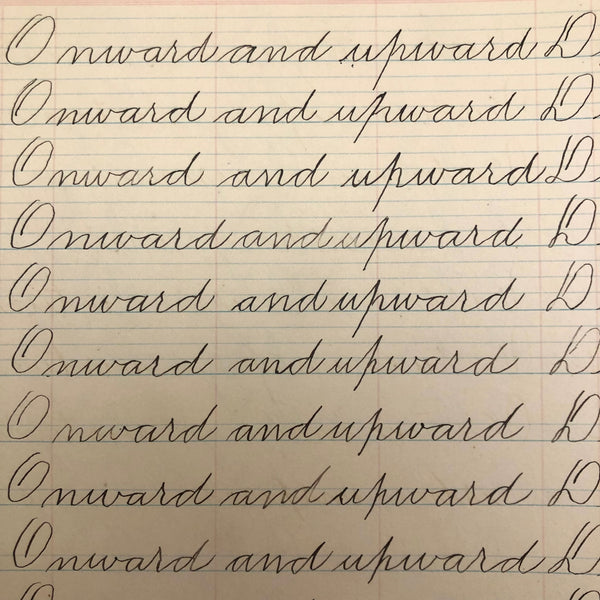 Onward and upward D
Onward and upward D
Onward and upward D
Onward and upward D
Onward and upward D
Onward and upward D
Onward and upward D
Onward and upward D
Onward and upward D